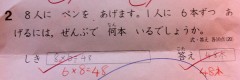 2 8人に ペンを あげます。1人に 6本ずつ あ
げるには、ぜんぶで 何本 いるでしょうか。
しき 8×6=48 答え
6×8=48 48本